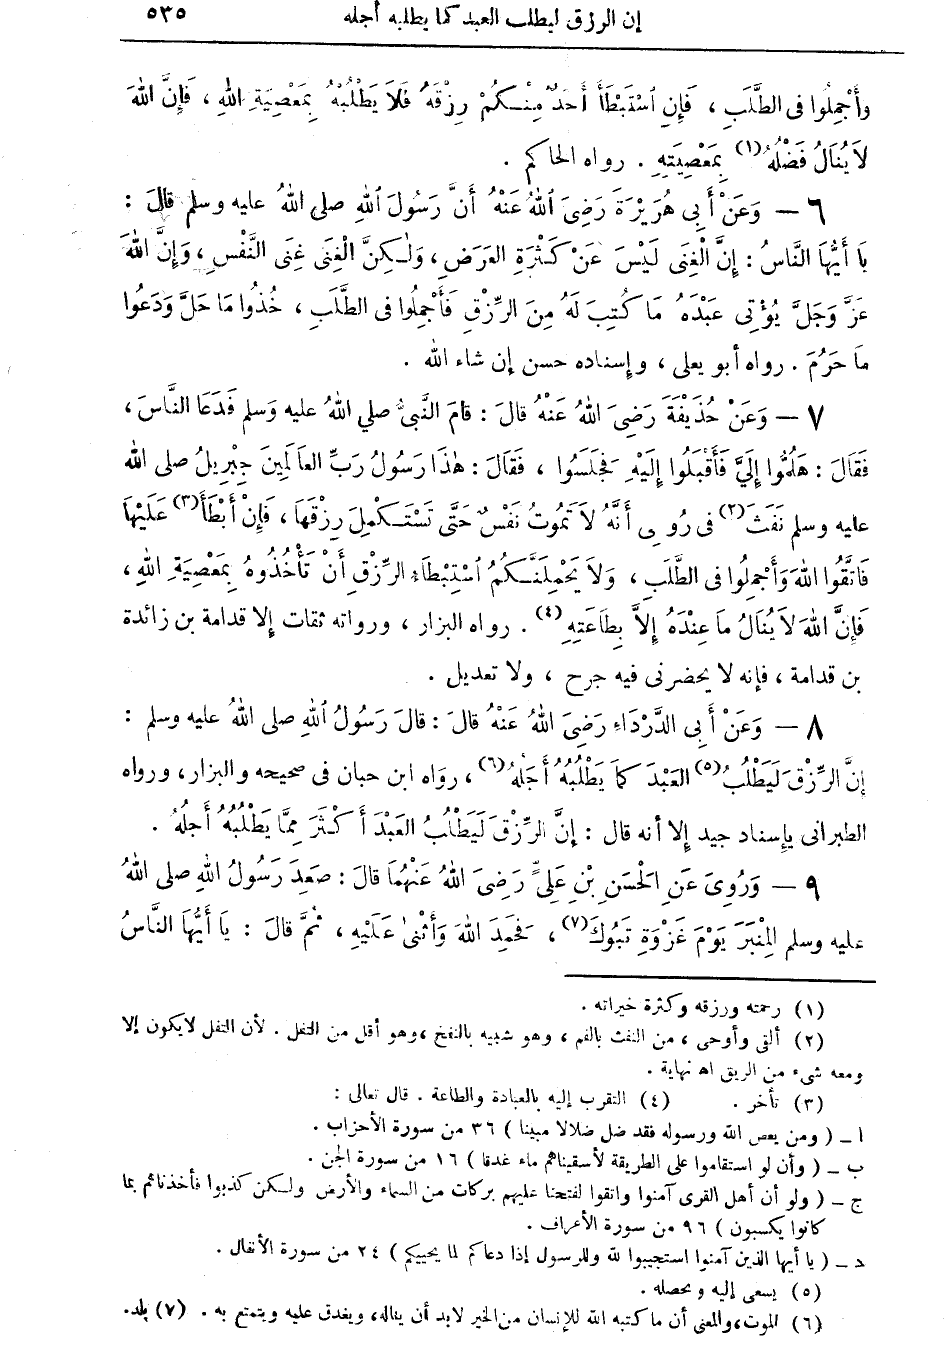 إن الرزق ليطلب العبد كما يطلبه أجله ٥٣٥
وأَجْمِلُوا فى الطَّلَبِ ، فَإِنِ اسْتَبْطَأَ أَحَدٌ مِنْكُمْ رِزْقَهُ فَلَا يَطْلُبْهُ بِمَعْصِيَةِ اللهِ ، فَإِنَّ اللهَ
لَا يُنَالُ فَضْلُهُ(١) بِمَعْصِيَتِهِ . رواه الحاكم .
٦ — وَعَنْ أَبِى هُرَيْرَةَ رَضِىَ اللهُ عَنْهُ أَنَّ رَسُولَ اللهِ صلى اللهُ عليه وسلم قالَ :
يَا أَيُّهَا النَّاسُ : إِنَّ الْغِنَى لَيْسَ عَنْ كَثْرَةِ العَرَضِ ، وَلٰكِنَّ الْغِنَى غِنَى النَّفْسِ ، وَإِنَّ اللهَ
عَزَّ وَجَلَّ يُؤْتِى عَبْدَهُ مَا كُتِبَ لَهُ مِنَ الرِّزْقِ فَأَجْمِلُوا فى الطَّلَبِ ، خُذُوا مَا حَلَّ وَدَعُوا
مَا حَرُمَ . رواه أبو يعلى ، وإسناده حسن إن شاء الله .
٧ — وَعَنْ حُذَيْفَةَ رَضِىَ اللهُ عَنْهُ قالَ : قامَ النَّبىُّ صلى اللهُ عليه وَسلم فَدَعَا النَّاسَ ،
فَقَالَ : هَلُمُّوا إِلَىَّ فَأَقْبَلُوا إِلَيْهِ فَجَلَسُوا ، فَقَالَ : هٰذَا رَسُولُ رَبِّ العَالَمِينَ جِبْرِيلُ صلى الله
عليه وسلم نَفَثَ(٢) فى رُوعِى أَنَّهُ لَا تَمُوتُ نَفْسٌ حَتَّى تَسْتَكْمِلَ رِزْقَهَا ، فَإِنْ أَبْطَأَ(٣) عَلَيْهَا
فَاتَّقُوا اللهَ وَأَجْمِلُوا فى الطَّلَبِ ، وَلَا يَحْمِلَنَّكُمُ اسْتِبْطَاءُ الرِّزْقِ أَنْ تَأْخُذُوهُ بِمَعْصِيَةِ اللهِ ،
فَإِنَّ اللهَ لَا يُنَالُ مَا عِنْدَهُ إِلَّا بِطَاعَتِهِ(٤) . رواه البزار ، ورواته ثقات إلا قدامة بن زائدة
بن قدامة ، فإنه لا يحضرنى فيه جرح ، ولا تعديل .
٨ — وَعَنْ أَبِى الدَّرْدَاءِ رَضِىَ اللهُ عَنْهُ قالَ : قالَ رَسُولُ اللهِ صلى اللهُ عليه وسلم :
إِنَّ الرِّزْقَ لَيَطْلُبُ(٥) العَبْدَ كَمَا يَطْلُبُهُ أَجَلُهُ(٦) ، رَوَاه ابن حبان فى صحيحه والبزار ، ورواه
الطبرانى بإسناد جيد إلا أنه قال : إِنَّ الرِّزْقَ لَيَطْلُبُ العَبْدَ أَكْثَرَ مِمَّا يَطْلُبُهُ أَجَلُهُ .
٩ — وَرُوِىَ عَنِ الْحَسَنِ بْنِ عَلِىٍّ رَضِىَ اللهُ عَنْهُمَا قالَ : صَعِدَ رَسُولُ اللهِ صلى اللهُ
عليه وسلم المِنْبَرَ يَوْمَ غَزْوَةِ تَبُوكَ(٧) ، فَحَمِدَ اللهَ وَأَثْنَى عَلَيْهِ ، ثُمَّ قالَ : يَا أَيُّهَا النَّاسُ
(١) رحمته ورزقه وكثرة خيراته .
(٢) ألقى وأوحى ، من النفث بالفم ، وهو شبيه بالنفخ ، وهو أقل من التفل . لأن التفل لايكون إلا
ومعه شىء من الريق اه نهاية .
(٣) تأخر . (٤) التقرب إليه بالعبادة والطاعة . قال تعالى :
ا ــ ( ومن يعص الله ورسوله فقد ضل ضلالا مبينا ) ٣٦ من سورة الأحزاب .
ب ــ ( وأن لو استقاموا على الطريقة لأسقيناهم ماء غدقا ) ١٦ من سورة الجن .
ج ــ ( ولو أن أهل القرى آمنوا واتقوا لفتحنا عليهم بركات من السماء والأرض ولكن كذبوا فأخذناهم بما
كانوا يكسبون ) ٩٦ من سورة الأعراف .
د ــ ( يا أيها الذين آمنوا استجيبوا لله وللرسول إذا دعاكم لما يحييكم ) ٢٤ من سورة الأنفال .
(٥) يسعى إليه ويحصله .
(٦) الموت ، والمعنى أن ما كتبه الله للإنسان من الخير لابد أن يناله ، ويغدق عليه ويتمتع به . (٧) بلد .